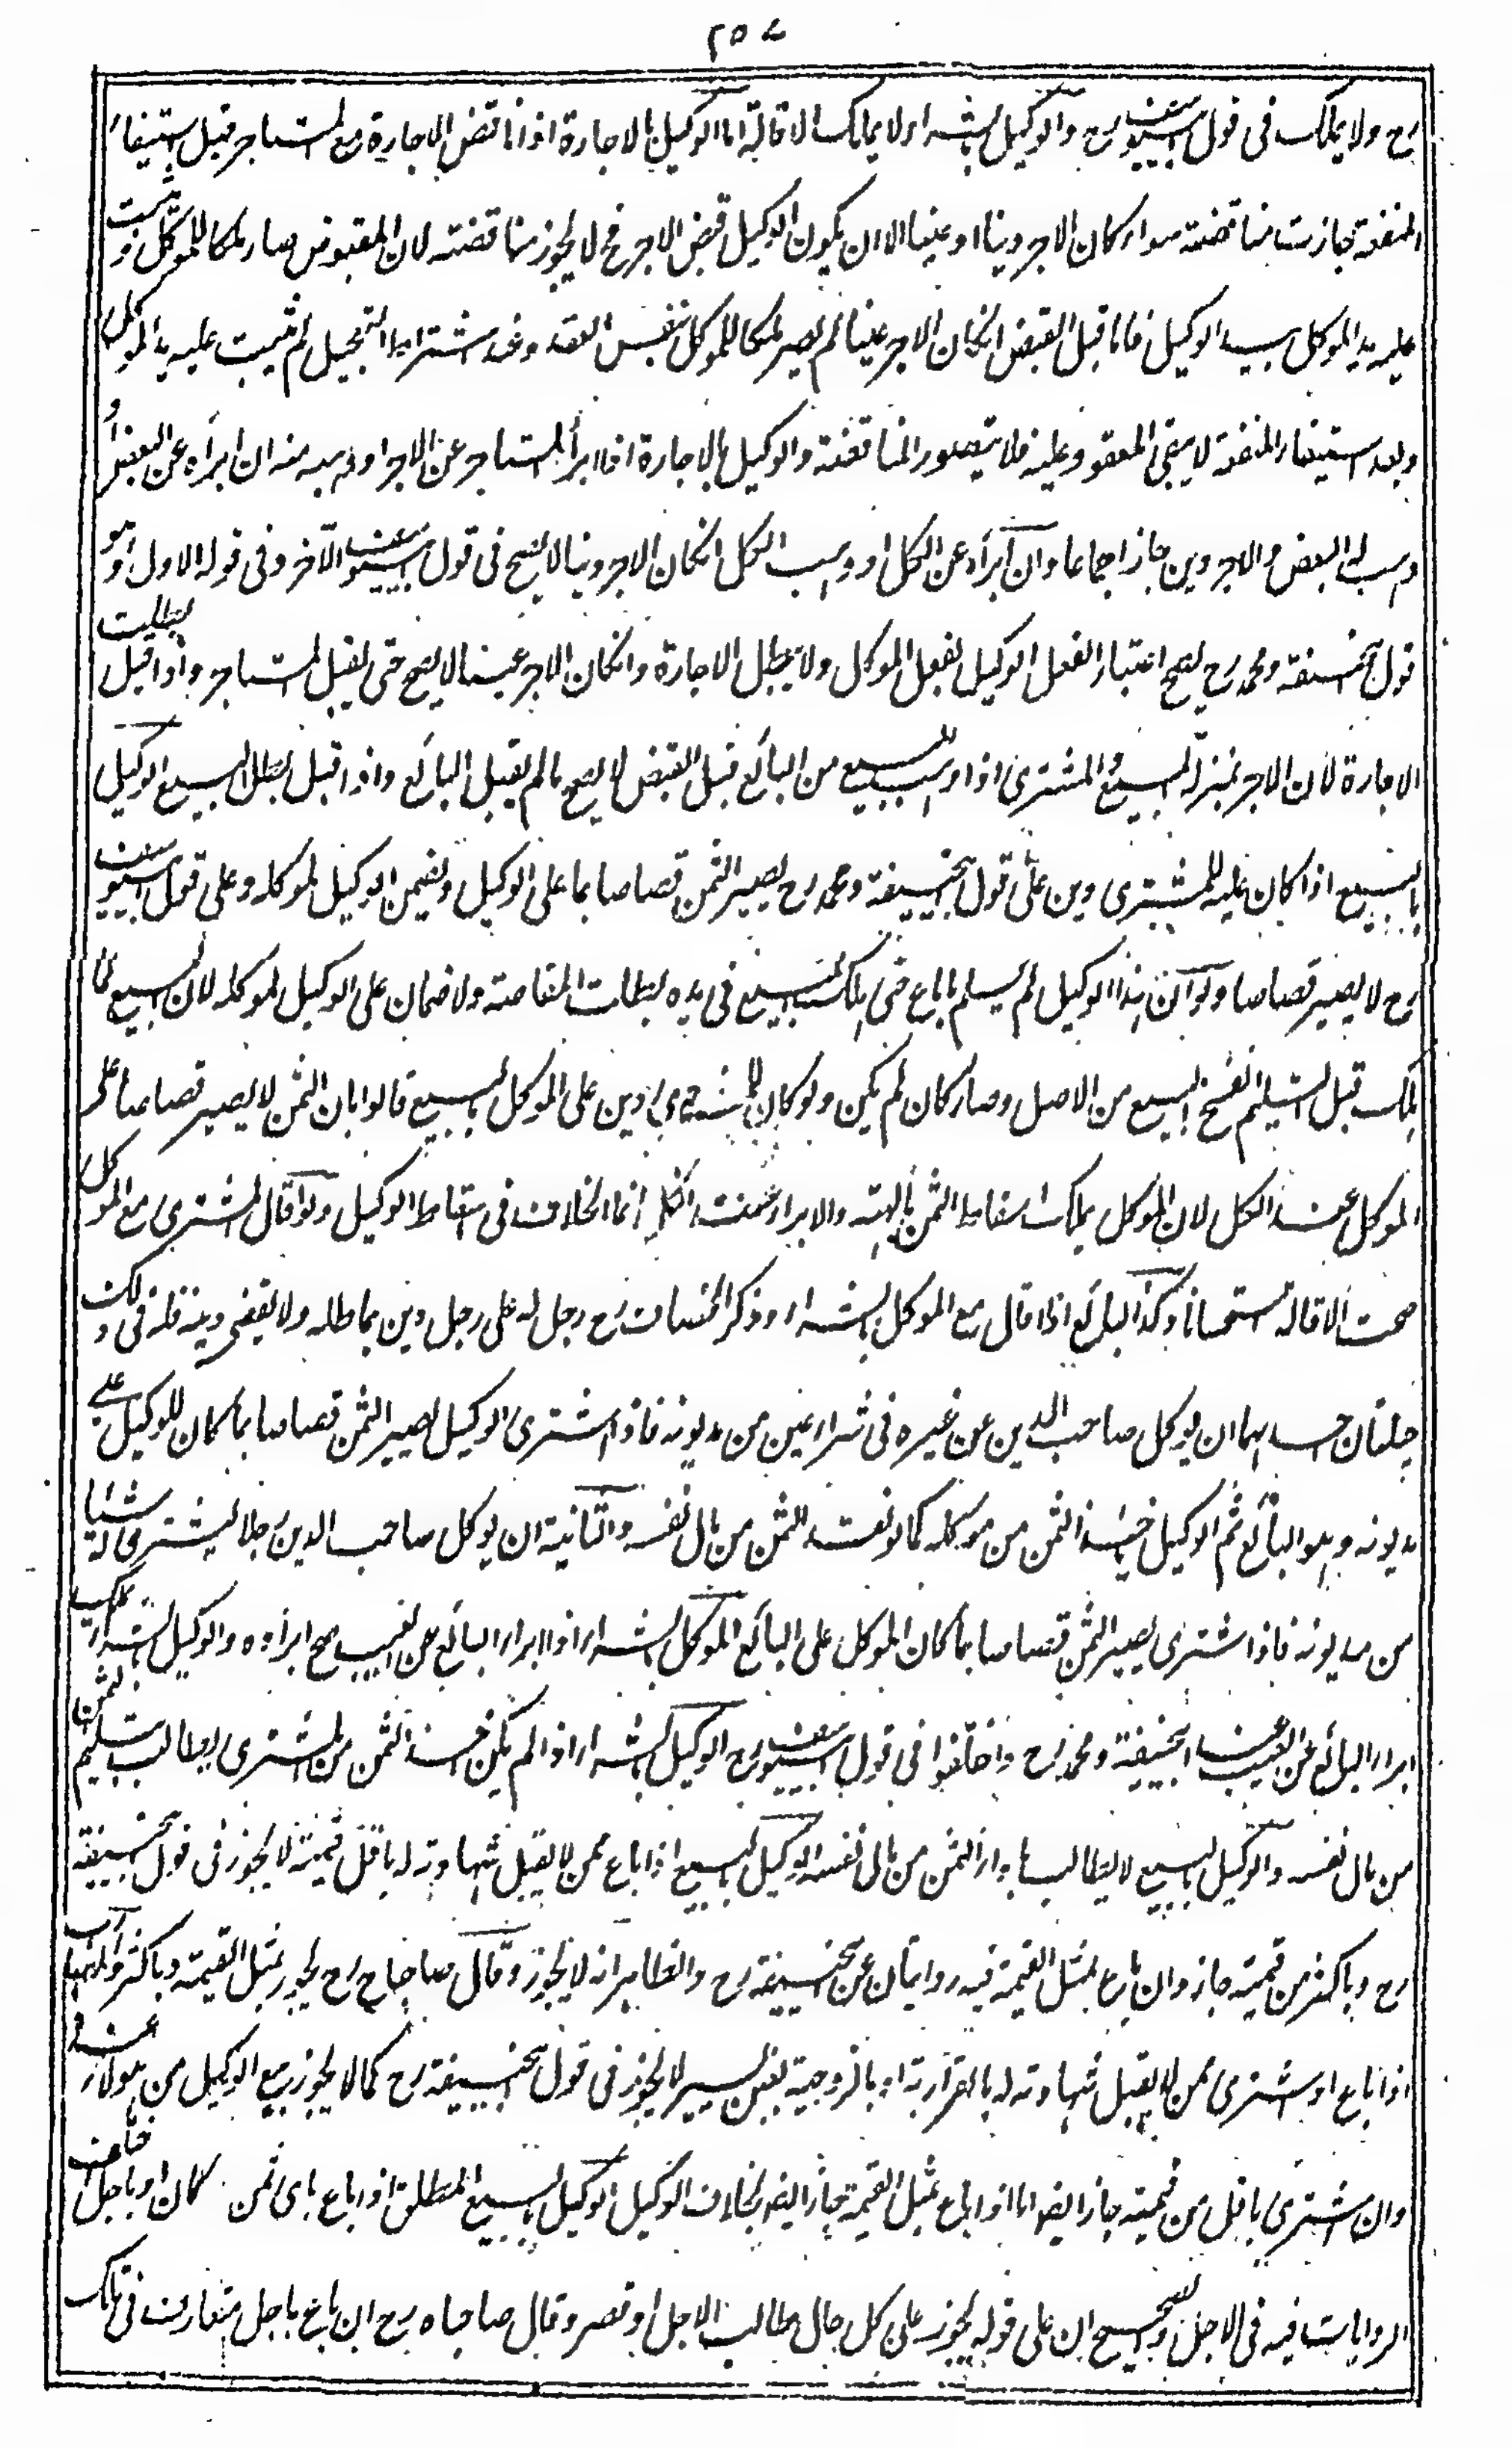 ٢٥٧
رح ولا يملك فى قول ابى يوسف رح والوكيل بالشراء لا يملك الاقالة اما الوكيل بالاجارة اذا ناقض الاجارة مع المستاجر قبل استيفاء
المنفعة جازت مناقضته سواء كان الاجر دينا او عينا الا ان يكون الوكيل قبض الاجر فح لا يجوز مناقضته لان المقبوض صار ملكا للموكل وثبت
عليه يد الموكل بيد الوكيل فاما قبل القبض انكان الاجر عينا لم يصر ملكا للموكل بنفس العقد وعند اشتراط التعجيل لم يثبت عليه يد الموكل
وبعد استيفاء المنفعة لا يبقى المعقود عليه فلا يتصور المناقضة والوكيل بالاجارة اذا ابرأ المستاجر عن الاجر او وهبه منه ان ابرأه عن البعض او
وهب له البعض والاجر دين جاز اجماعا وان ابرأه عن الكل او وهب الكل انكان الاجر دينا لا يصح فى قول ابى يوسف الآخر وفى قوله الاول وهو
قول ابى حنيفة ومحمد رح يصح اعتبارا لفعل الوكيل بفعل الموكل ولا يبطل الاجارة وانكان الاجر عينا لا يصح حتى يقبل المستاجر واذا قبل بطلت
الاجارة لان الاجر بمنزلة المبيع والمشترى اذا وهب المبيع من البائع قبل القبض لا يصح مالم يقبل البائع واذا قبل بطل البيع الوكيل
بالبيع اذا كان عليه للمشترى دين على قول ابى حنيفة ومحمد رح يصير الثمن قصاصا بما على الوكيل ويضمن الوكيل لموكله وعلى قول ابى يوسف
رح لا يصير قصاصا ولو ان هذا الوكيل لم يسلم ما باع حتى هلك المبيع فى يده بطلت المقاصة ولا ضمان على الوكيل لموكله لان المبيع لما
هلك قبل التسليم انفسخ البيع من الاصل وصار كان لم يكن ولو كان للمشترى دين على الموكل بالبيع قالوا بان الثمن لا يصير قصاصا على
الموكل عند الكل لان الموكل يملك اسقاط الثمن بالهبة والابراء عند الكل انما الخلاف فى اسقاط الوكيل ولو اقال المشترى مع الموكل
صحت الاقالة استحسانا وكذا البائع اذا اقال مع الموكل بالشراء وذكر الخصاف رح رجل له على رجل دين يماطله ولا يقضى دينه فله فى ذلك
حيلتان احدهما ان يوكل صاحب الدين عن غيره فى شراء عين من مديونه فاذا اشترى الوكيل يصير الثمن قصاصا بما كان للوكيل على
مديونه وهو البائع ثم الوكيل ياخذ الثمن من موكله كما لو نقد الثمن من مال نفسه والثانية ان يوكل صاحب الدين رجلا ليشترى له شيئا
من مديونه فاذا اشترى يصير الثمن قصاصا بما كان للموكل على البائع الموكل بالشراء اذا ابرأ البائع عن العيب صح ابراءه والوكيل بالشراء يملك
ابراء البائع عن العيب عند ابى حنيفة ومحمد رح واختلفوا فى قول ابى يوسف رح الوكيل بالشراء اذا لم يكن اخذ الثمن من المشترى يطالب بتسليم الثمن
من مال نفسه والوكيل بالبيع لا يطالب باداء الثمن من مال نفسه الوكيل بالبيع اذا باع ممن لا يقبل شهادته له باقل قيمته لا يجوز فى قول ابى حنيفة
رح وباكثر من قيمته جاز وان باع بمثل القيمة فيه روايتان عن ابى حنيفة رح والظاهر انه لا يجوز وقال صاحباه رح يجوز بمثل القيمة وباكثر والمضارب
اذا باع او اشترى ممن لا يقبل شهادته له بالقرابة او بالزوجية بغبن يسير لا يجوز فى قول ابى حنيفة رح كما لا يجوز بيع الوكيل من هولاء عنده
وان اشترى باقل من قيمته جاز ايضا اما اذا باع بمثل القيمة جاز ايضا بخلاف الوكيل الوكيل بالبيع المطلق اذا باع باى ثمن كان او باجل اختلف
الروايات فيه فى الاجل والصحيح ان على قوله يجوز على كل حال طالت الاجل او قصر وقال صاحباه رح ان باع باجل متعارف فى تلك